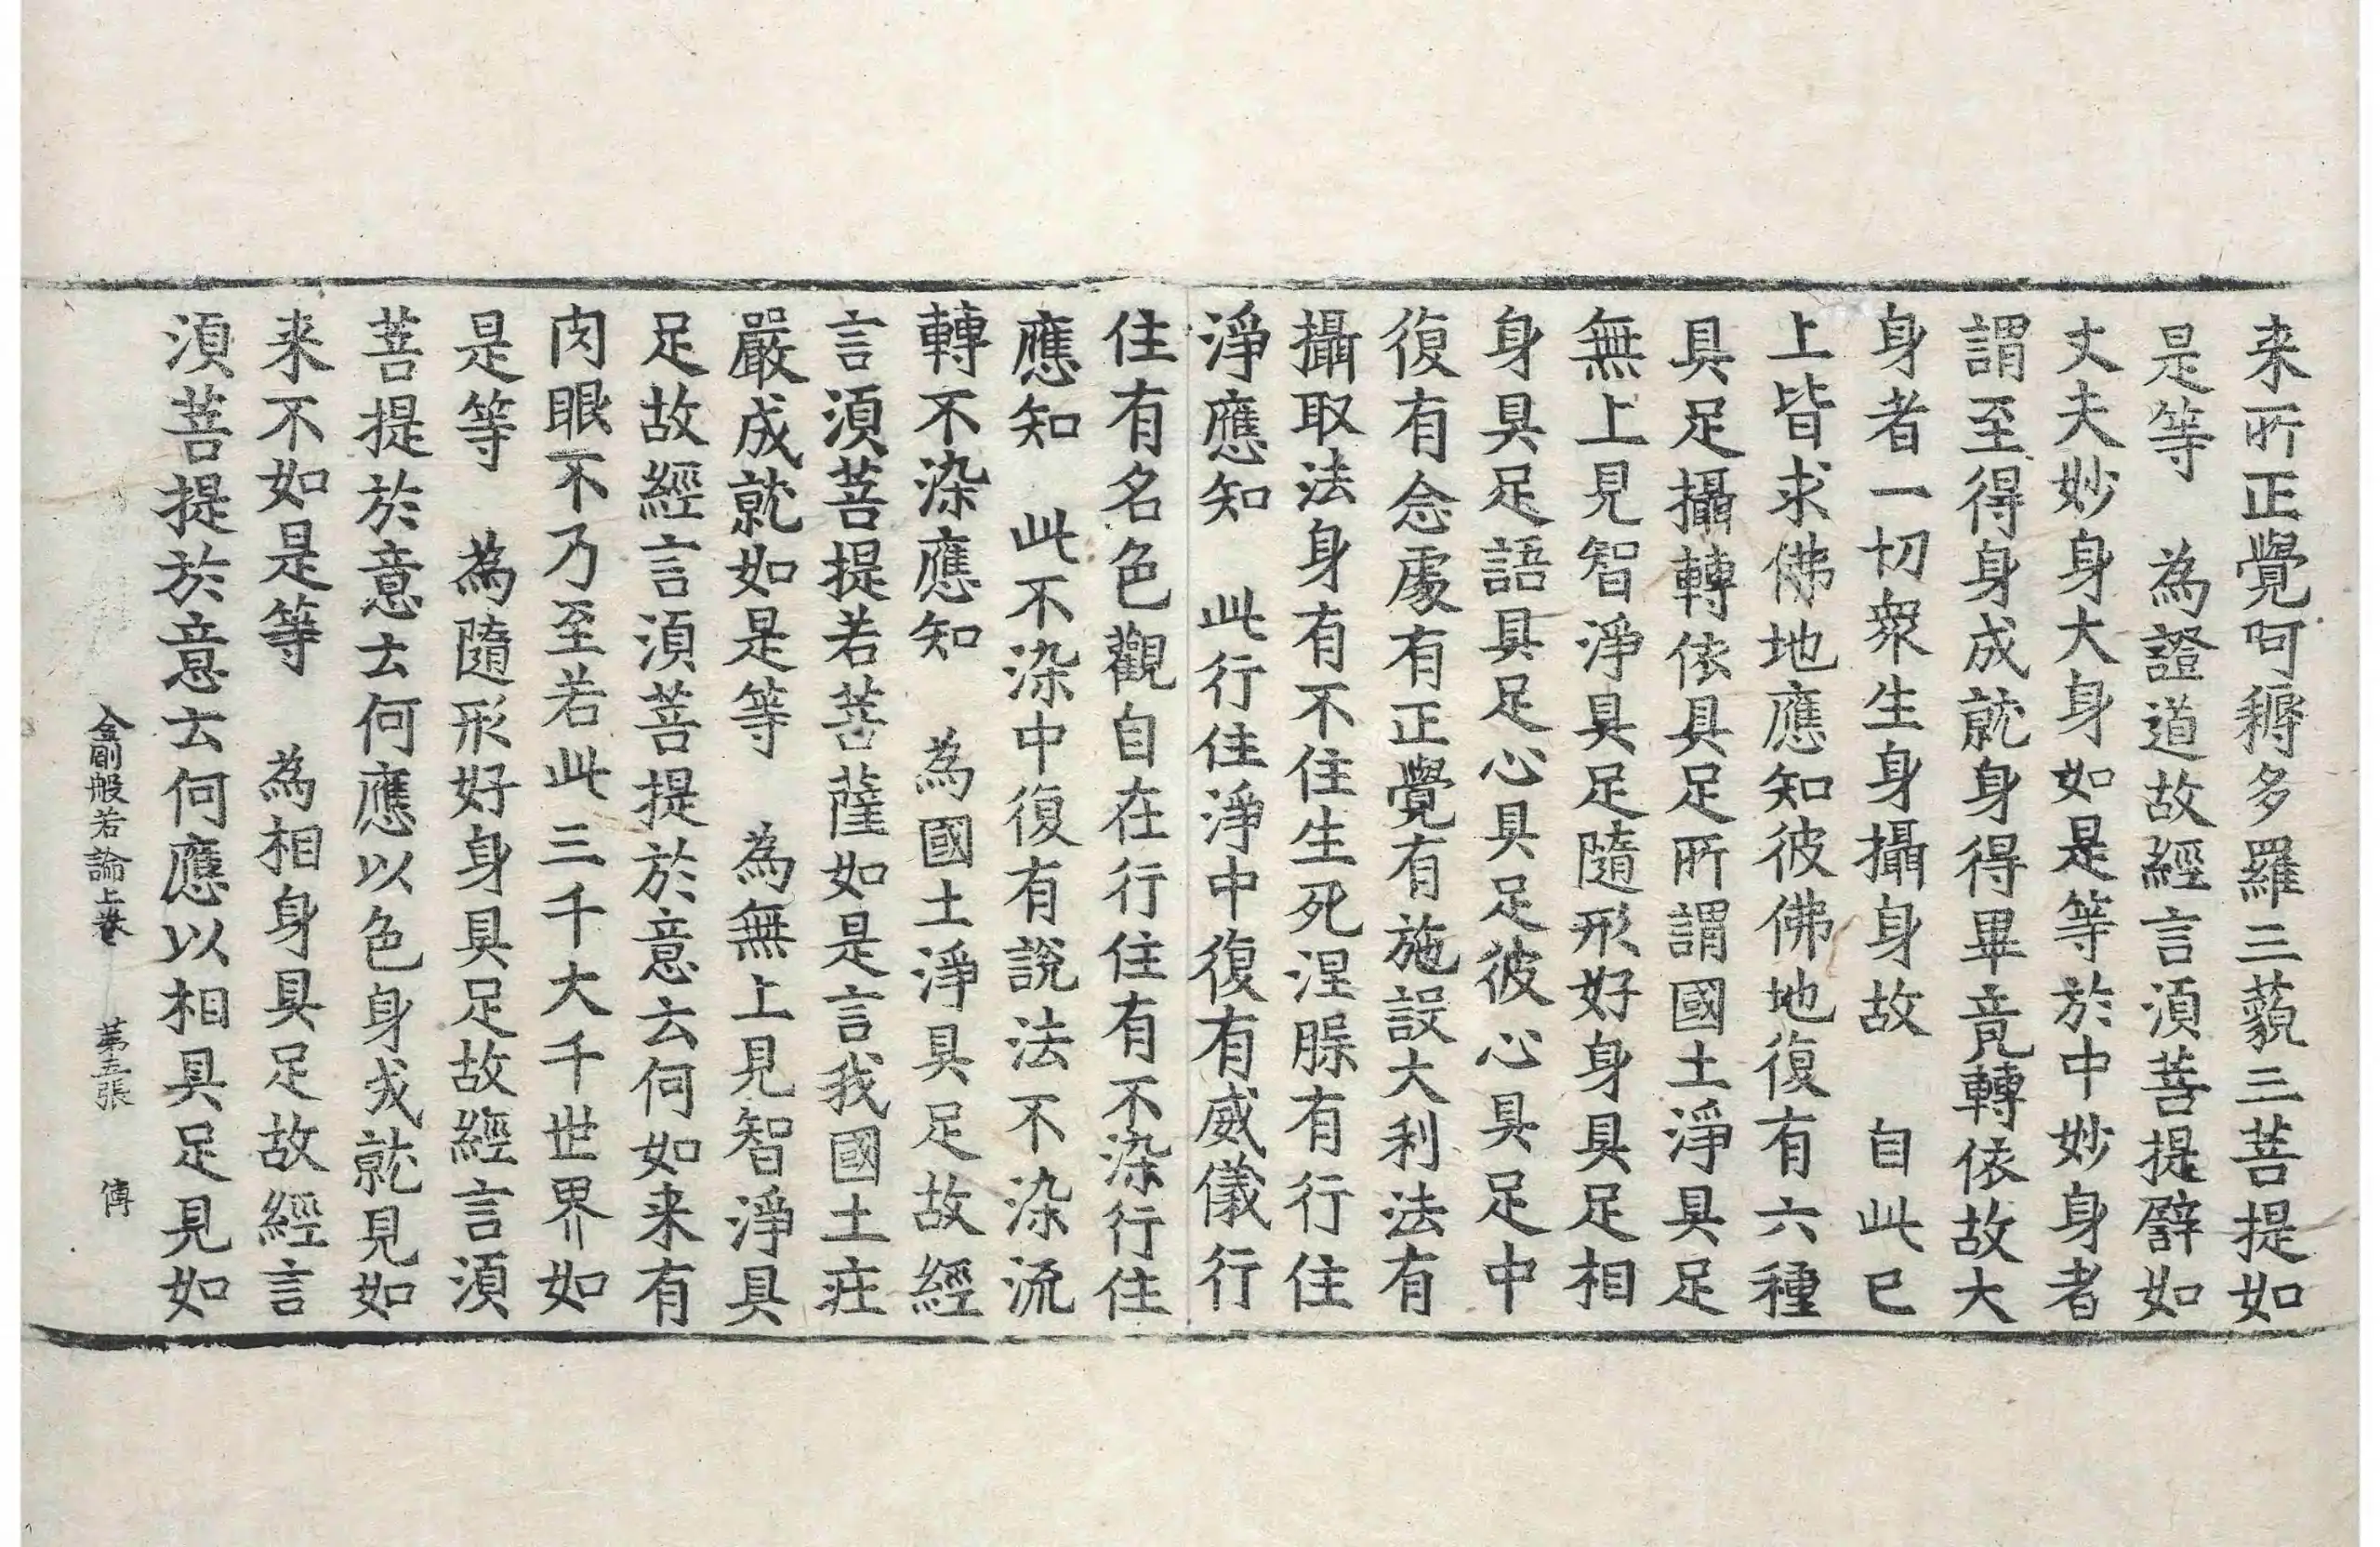 来所正覺阿耨多羅三藐三菩提如
是等　為證道故經言湏菩提譬如
丈夫妙身大身如是等於中妙身者
謂至得身成就身得畢竟轉依故大
身者一切衆生身攝身故　自此已
上皆求佛地應知彼佛地復有六種
具足攝轉依具足所謂國土淨具足
無上見智淨具足隨形好身具足相
身具足語具足心具足彼心具足中
復有念處有正覺有施設大利法有
攝取法身有不住生死涅槃有行住
淨應知　此行住淨中復有威儀行
住有名色觀自在行住有不染行住
應知　此不染中復有說法不染流
轉不染應知　為國土淨具足故經
言湏菩提若菩薩如是言我國土莊
嚴成就如是等　為無上見智淨具
足故經言湏菩提於意云何如来有
肉眼不乃至若此三千大千世界如
是等　為隨形好身具足故經言湏
菩提於意云何應以色身成就見如
来不如是等　為相身具足故經言
湏菩提於意云何應以相具足見如
金剛般若論上卷　第五張　傳